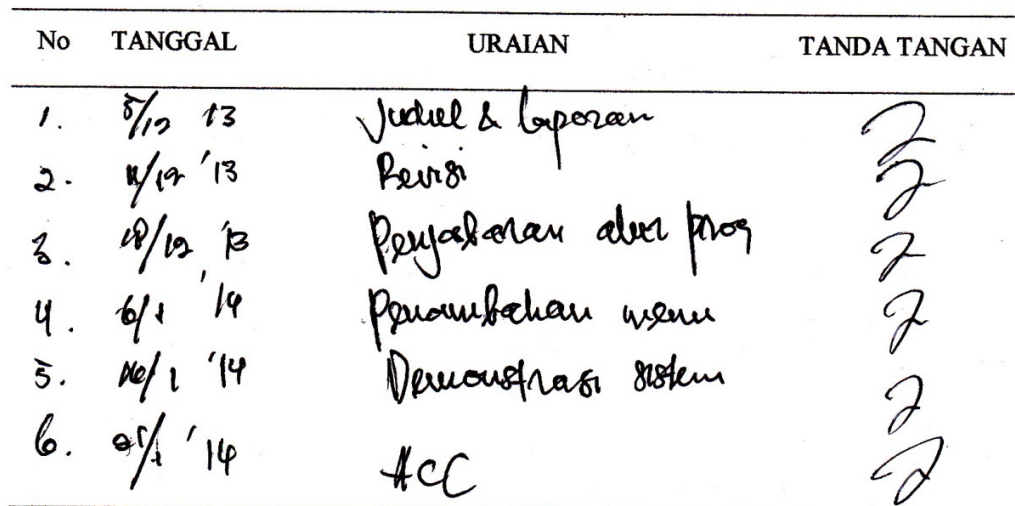 No TANGGAL URAIAN TANDA TANGAN
1. 5/12 13 Judul & laporan
2. 11/12 '13 Revisi
3. 18/12 '13 Penjabaran alur prog
4. 6/1 '14 Penambahan menu
5. 16/1 '14 Demonstrasi sistem
6. '14 ACC